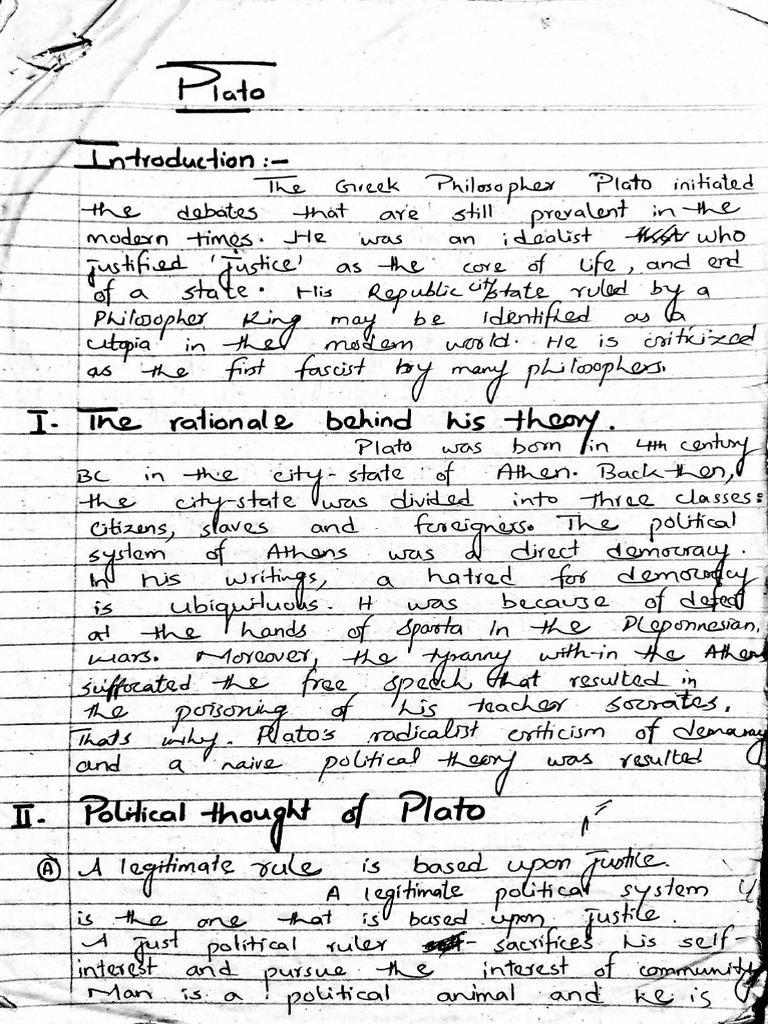 Plato
Introduction :-
The Greek Philosopher Plato initiated
the debates that are still prevalent in the
modern times. He was an idealist who
justified 'justice' as the core of life, and end
of a state. His Republic city/state ruled by a
Philosopher King may be identified as a
Utopia in the modern world. He is criticized
as the first fascist by many philosophers.
I. The rationale behind his theory.
Plato was born in 4th century
BC in the city-state of Athen. Back then,
the city-state was divided into three classes:
Citizens, slaves and foreigners. The political
system of Athens was a direct democracy.
In his writings, a hatred for democracy
is ubiquituous. It was because of defeat
at the hands of Sparta in the Pleponnesian
wars. Moreover, the tyranny with-in the Athens
suffocated the free speech that resulted in
the poisoning of his teacher Socrates.
Thats why. Plato's radicalist criticism of
and a naive political theory was resulted
II. Political thought of Plato
(A) A legitimate rule is based upon justice.
A legitimate political system
is the one that is based upon justice.
A just political ruler sacrifices his self-
interest and pursue the interest of community
Man is a political animal and he is